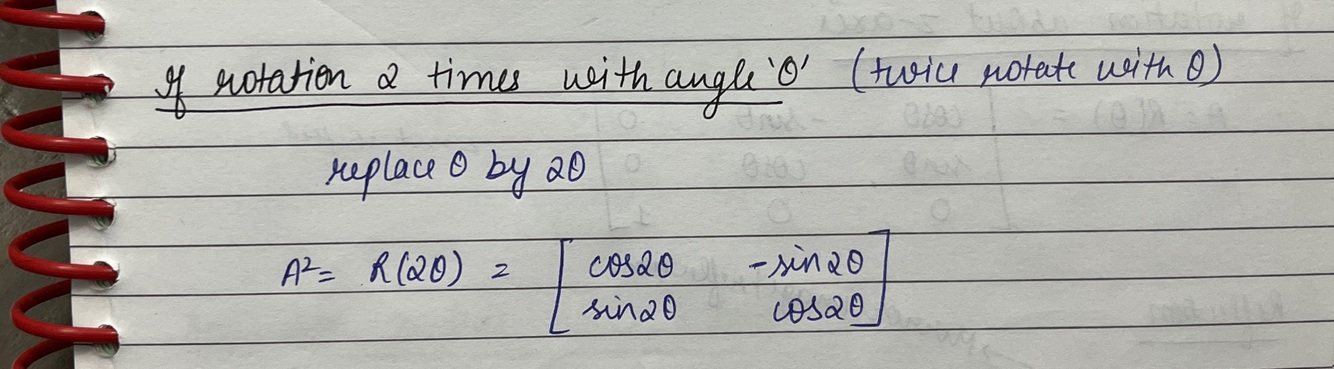 If rotation 2 times with angle 'θ' (twice rotate with θ)
replace θ by 2θ
A² = R(2θ) = [ cos2θ -sin2θ
sin2θ cos2θ ]